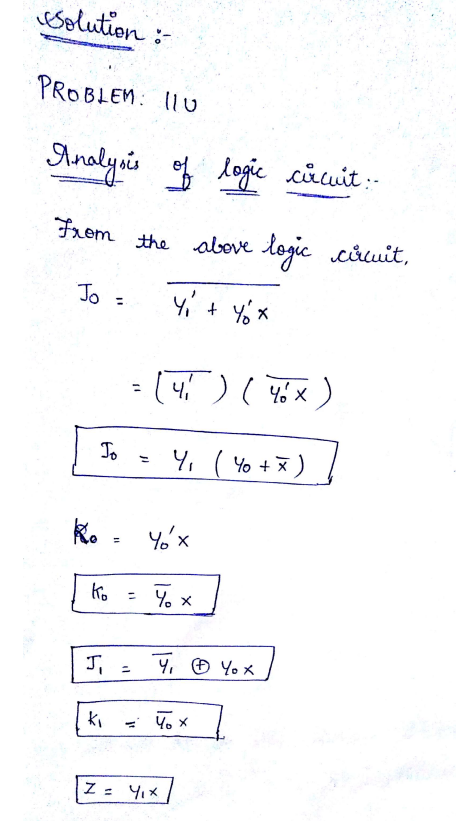 Solution :-
PROBLEM: 11U
Analysis of logic circuit :-
From the above logic circuit,
J₀ = \overline{y₁' + y₀'x}
= (\overline{y₁'}) (\overline{y₀'x})
J₀ = y₁ (y₀ + x̅)
K₀ = y₀'x
K₀ = y̅₀ x
J₁ = y̅₁ ⊕ y₀x
K₁ = y̅₀ x
Z = y₁x